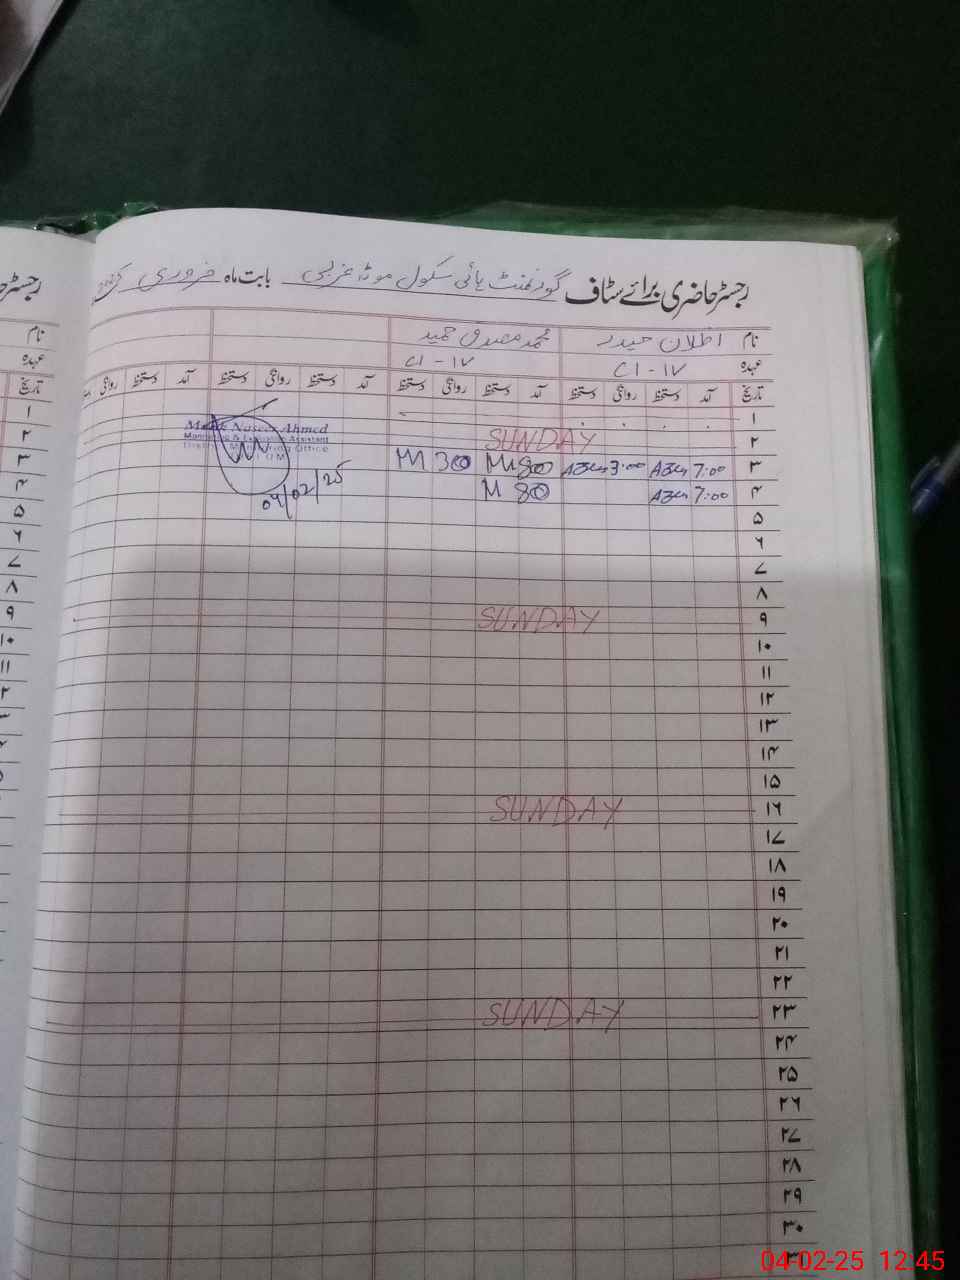 رجسٹر حاضری برائے سٹاف گورنمنٹ ہائی سکول موڈہ غربی بابت ماہ فروری
نام اظلان حیدر محمد مصدق حمید
عہدہ CI - IV CI - IV
تاریخ آمد دستخط روانگی دستخط آمد دستخط روانگی دستخط آمد دستخط روانگی دستخط آمد دستخط روانگی
۱
۲ SUNDAY
Naseer Ahmed
Monitoring & Evaluation Assistant
Monitoring Office
۳ 7:00 3:00 800 300
۴ 7:00 80
04/02/25
۵
۶
۷
۸
۹ SUNDAY
۱۰
۱۱
۱۲
۱۳
۱۴
۱۵
۱۶ SUNDAY
۱۷
۱۸
۱۹
۲۰
۲۱
۲۲
۲۳ SUNDAY
۲۴
۲۵
۲۶
۲۷
۲۸
۲۹
۳۰
رجسٹر
نام
عہدہ
تاریخ
۱
۲
۳
۴
۵
۶
۷
۸
۹
۱۰
۱۱
04-02-25 12:45